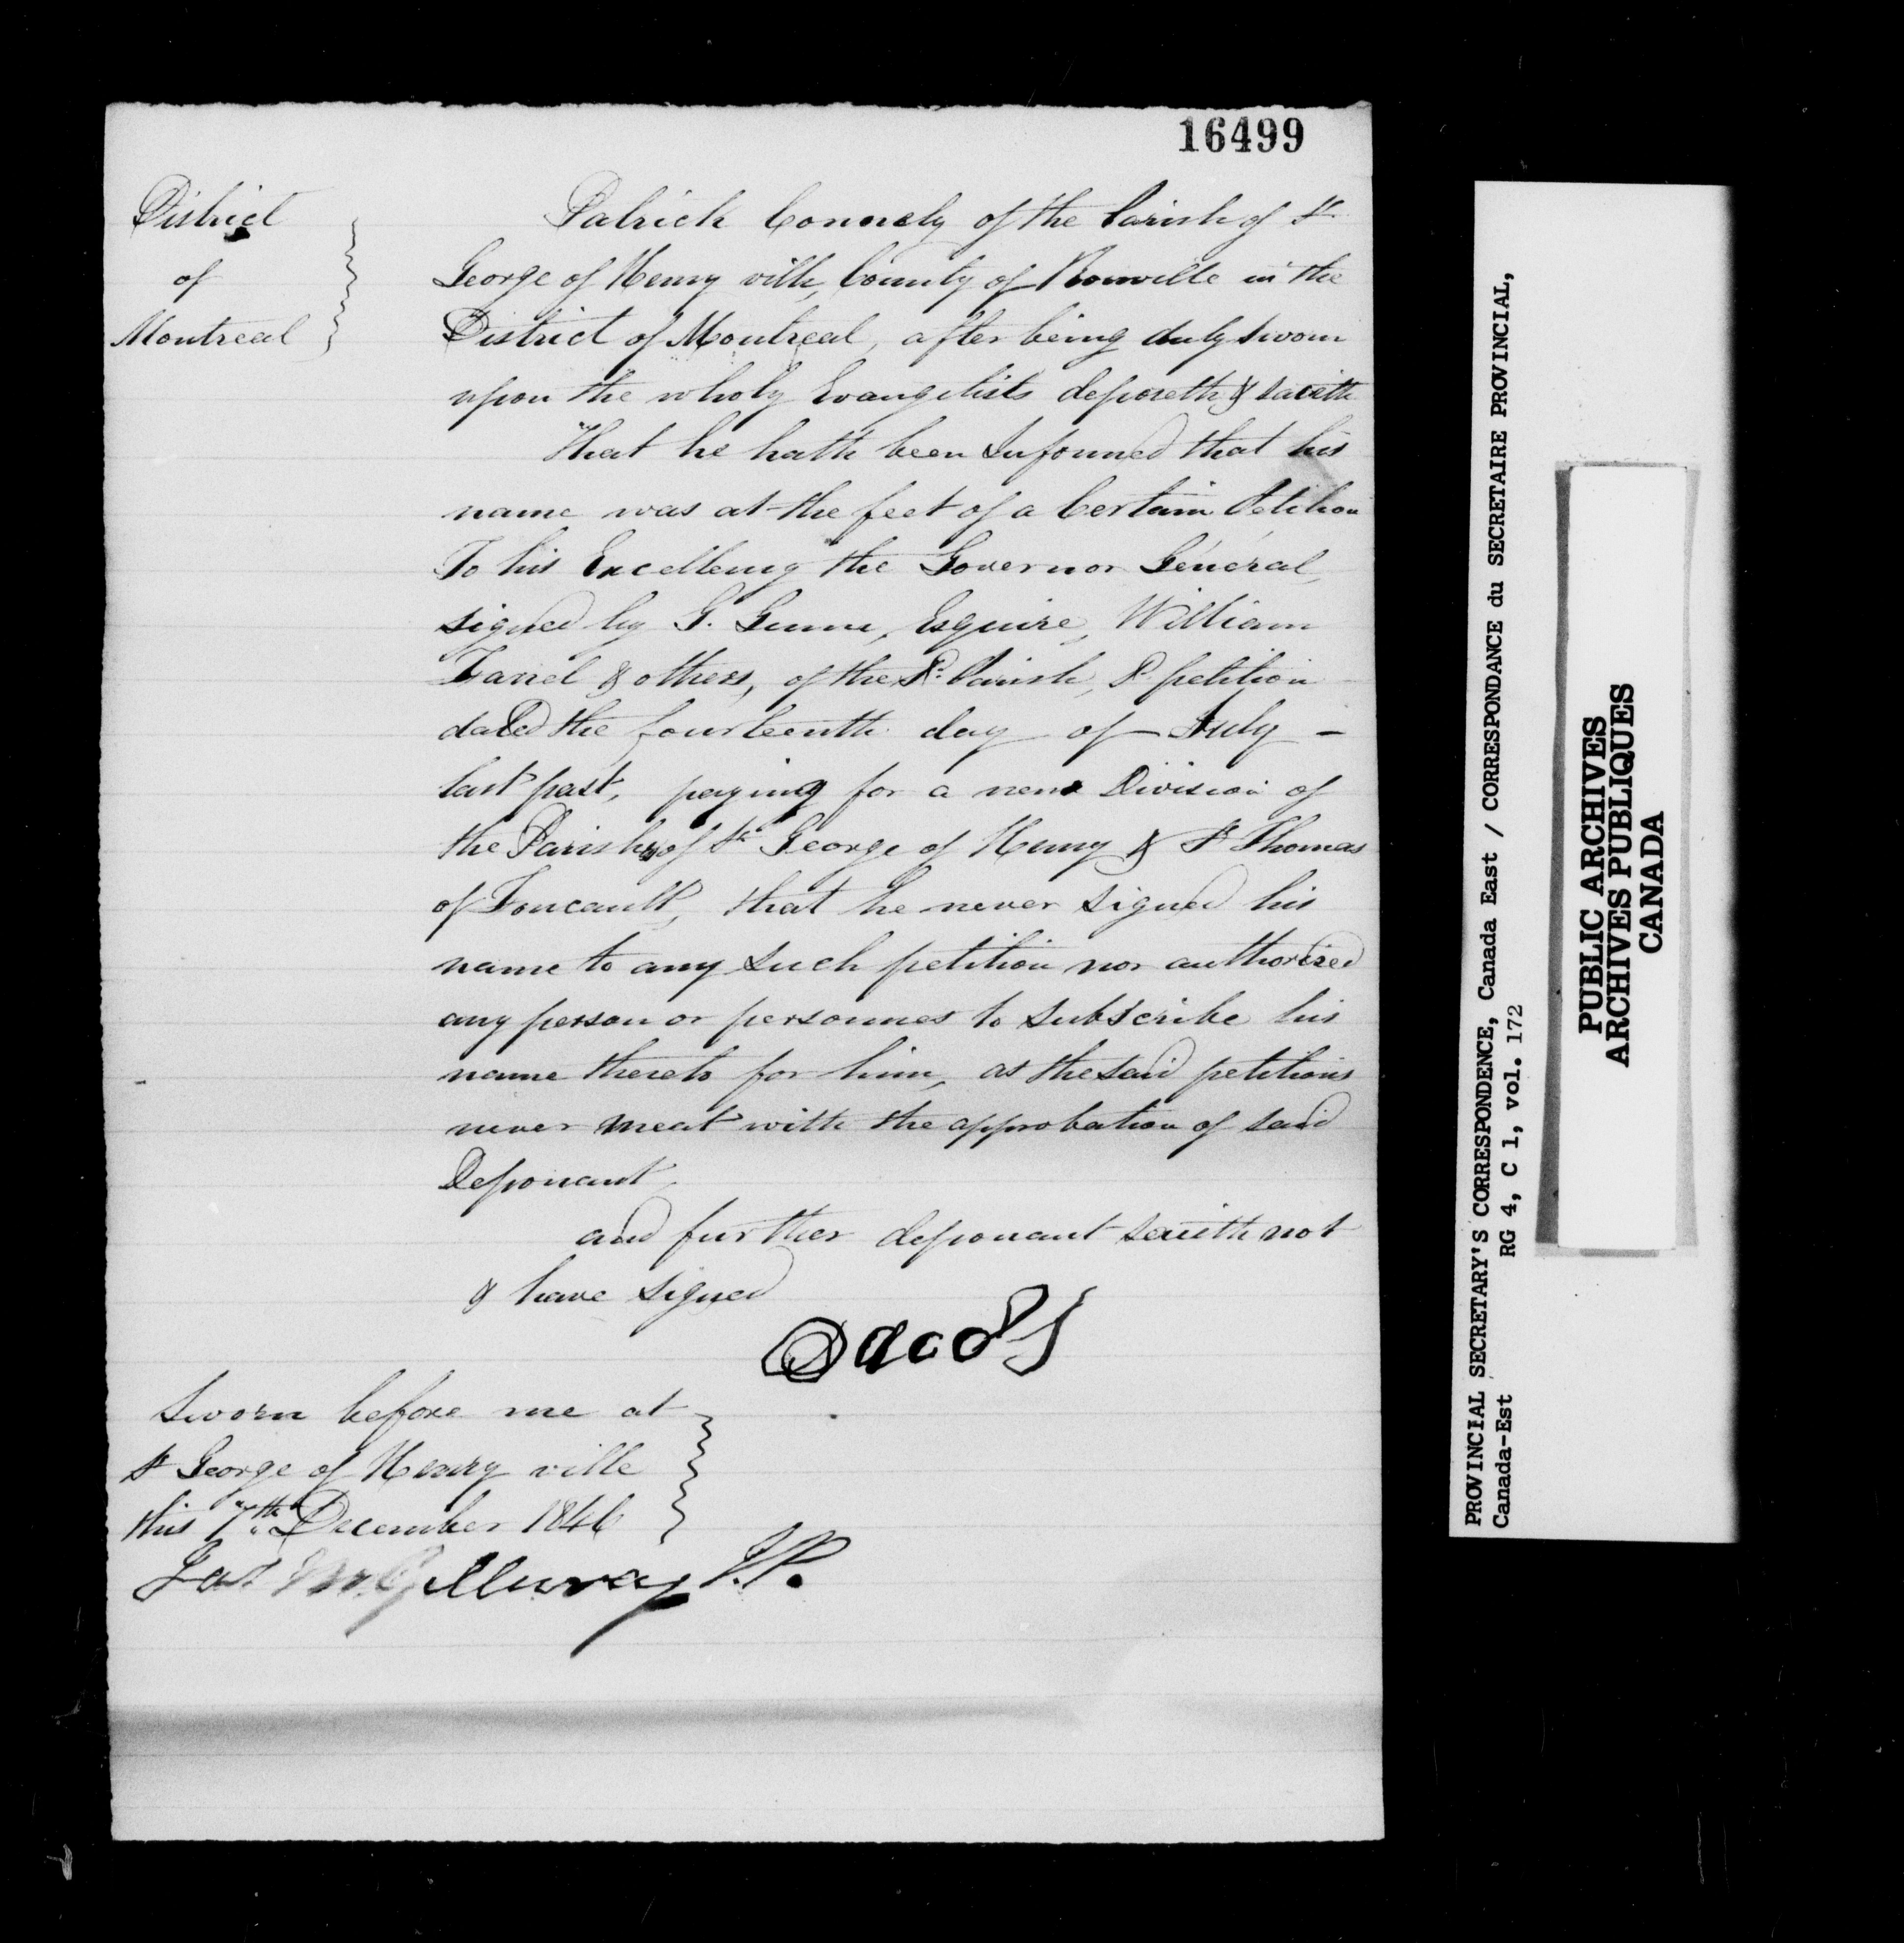 16499
District
of
Montreal
Patrick Connely of the Parish of St
George of Henry ville, County of Rouville in the
District of Montreal, after being duly sworn
upon the wholy Evangelists deposeth & saieth
That he hath been Informed that his
name was at the feet of a Certain Petition
To his Excellency the Governor Général,
signed by G. Gunn, Esquire, William
Farrel & others, of the Sd. Parish, Sd petition
dated the fourteenth day of July -
last past, paying for a new Division of
the Parishes of St George of Henry & St Thomas
of Foucault, that he never signed his
name to any such petition nor authorized
any person or personnes to subscribe his
name thereto for him, as the said petitions
never meat with the approbation of said
Deponant,
and further deponant saieth not
& have signed
Sworn before me at
St George of Henry ville
this 7th December 1846
Jas McGillivray J.P.
PROVINCIAL SECRETARY'S CORRESPONDENCE, Canada East / CORRESPONDANCE du SECRETAIRE PROVINCIAL,
Canada-Est RG 4, C 1, vol. 172
PUBLIC ARCHIVES
ARCHIVES PUBLIQUES
CANADA